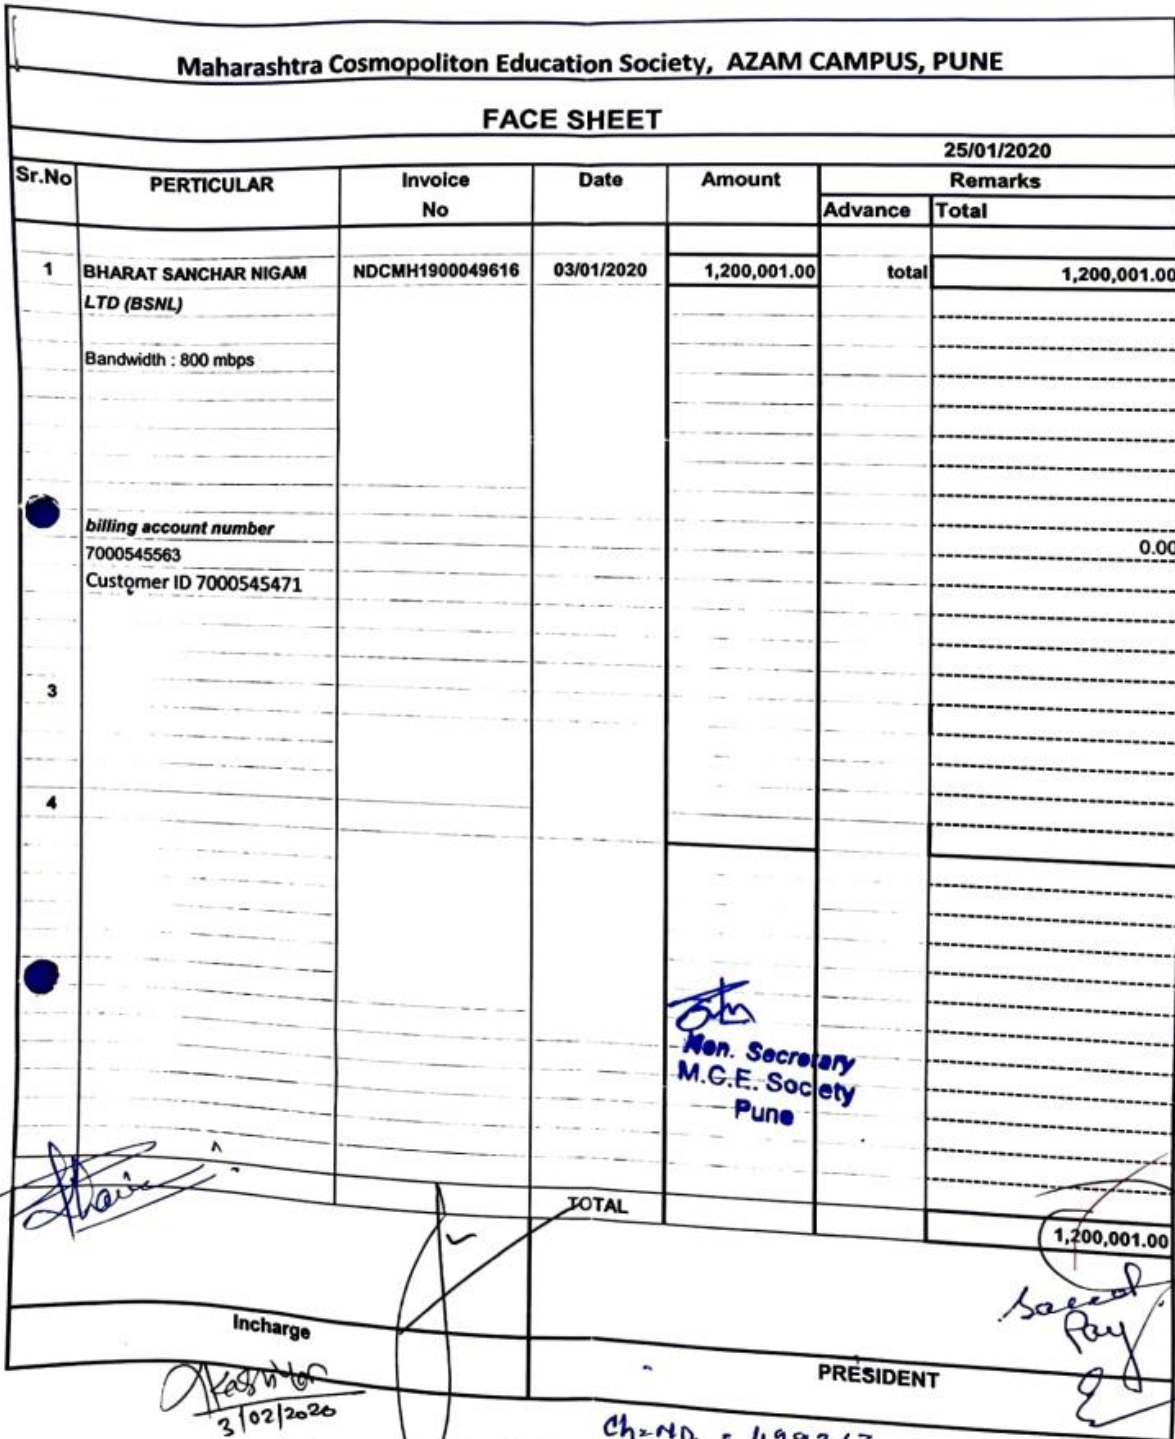 Maharashtra Cosmopoliton Education Society, AZAM CAMPUS, PUNE
FACE SHEET
25/01/2020
Sr.No PERTICULAR Invoice No Date Amount Remarks
Advance Total
1 BHARAT SANCHAR NIGAM NDCMH1900049616 03/01/2020 1,200,001.00 total 1,200,001.00
LTD (BSNL)
Bandwidth : 800 mbps
billing account number
7000545563 0.00
Customer ID 7000545471
3
4
Hon. Secretary
M.C.E. Society
Pune
TOTAL
1,200,001.00
Pay
Incharge
PRESIDENT
3/02/2020